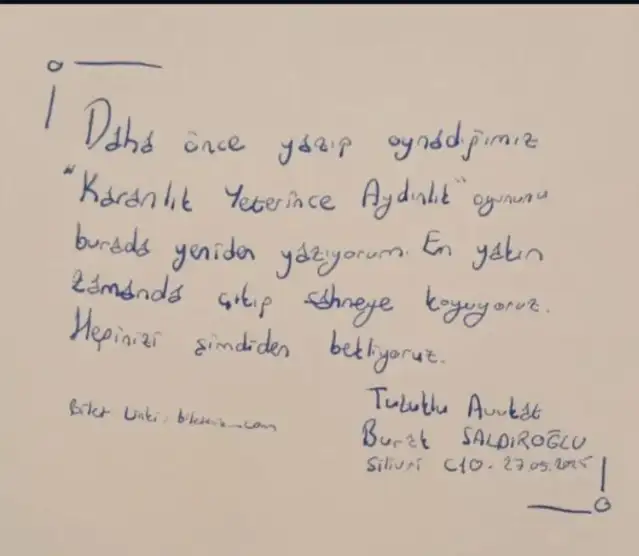 Daha önce yazıp oynadığımız
"Karanlık Yeterince Aydınlık" oyununu
burada yeniden yazıyorum. En yakın
zamanda çıkıp sahneye koyuyoruz.
Hepinizi şimdiden bekliyoruz.
Tutuklu Avukat
Bilet Linki:
Burak SALDIROĞLU
Silivri C10. 27.05.2025